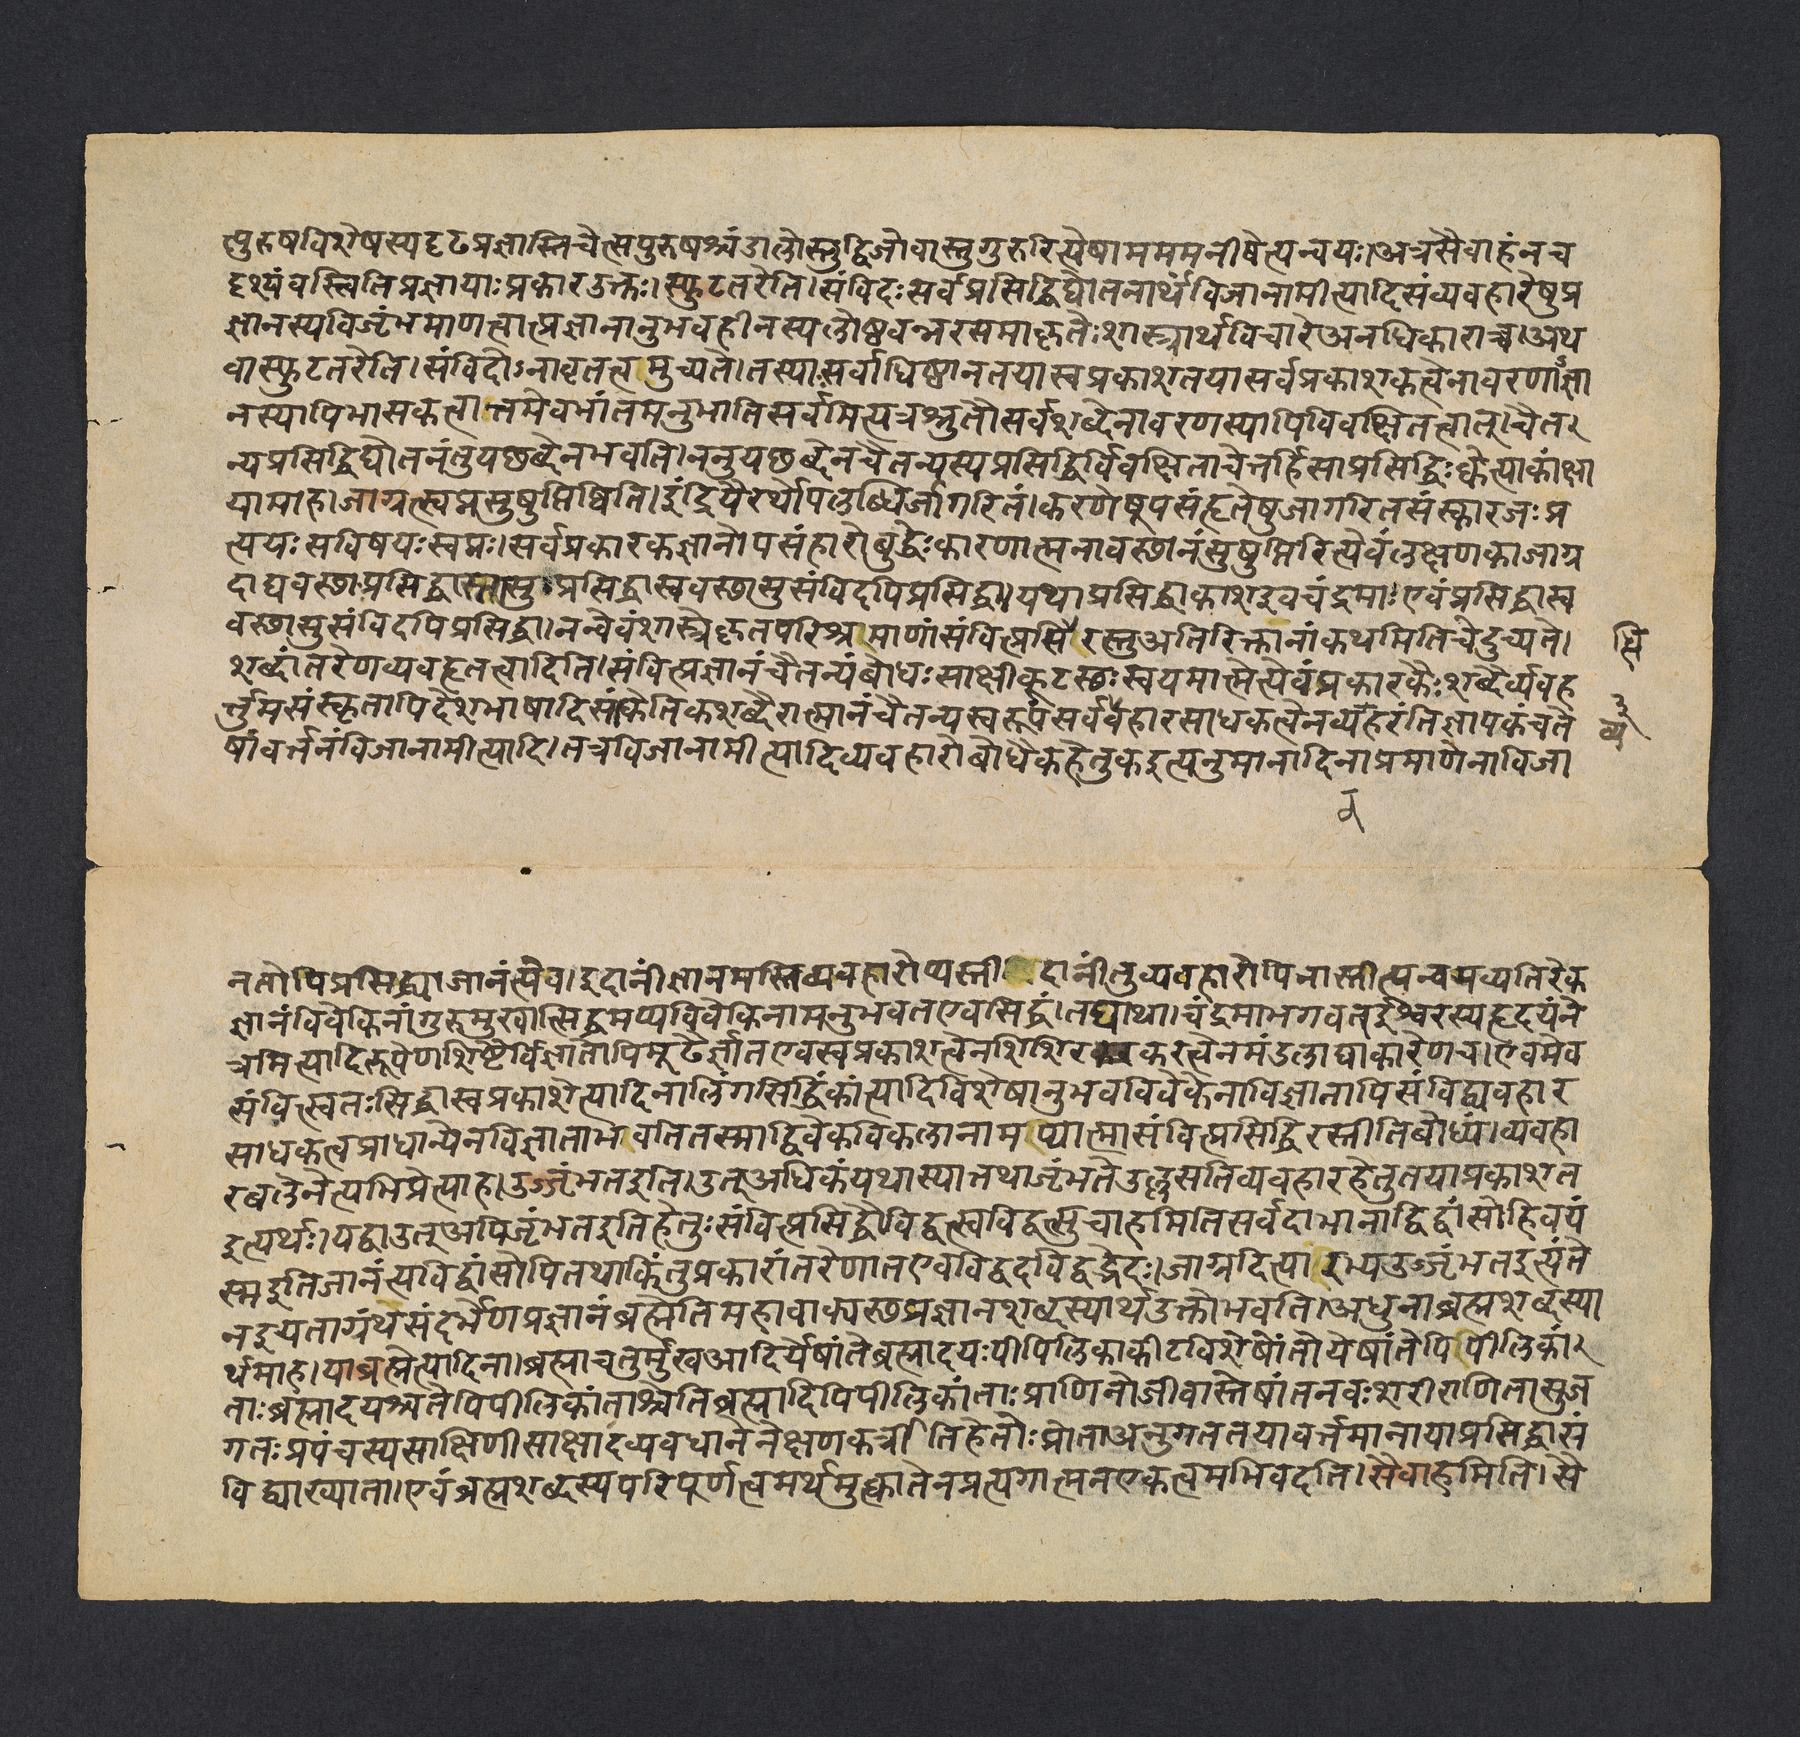 त्पुरुषविशेषस्यदृढप्रज्ञास्तिचेत्सपुरुषश्चंडालोस्तुद्विजोवास्तुगुरुरित्येषामममनीषेत्यन्वयः।अत्रसैवाहंनच
दृश्यंवस्त्वितिप्रज्ञायाःप्रकारउक्तः।स्फुटतरेति।संविदःसर्वप्रसिद्धिद्योतनार्थंविजानामीत्यादिसंव्यवहारेषुप्र
ज्ञानस्यविजृंभमाणत्वात्प्रज्ञानानुभवहीनस्यलोष्ठवन्नरसमाकृतेःशास्त्रार्थविचारेअनधिकाराच्च।अथ
वास्फुटतरेति।संविदोऽनावृतत्वमुच्यते।तस्याःसर्वाधिष्ठानतयास्वप्रकाशतयासर्वप्रकाशकत्वेनावरणाज्ञा
नस्यापिभासकत्वात्तमेवभांतमनुभातिसर्वमित्यत्रश्रुतौसर्वशब्देनावरणस्यापिविवक्षितत्वात्।चैत
न्यप्रसिद्धिद्योतनंतुयछब्देनभवति।ननुयछब्देनचैतन्यस्यप्रसिद्धिर्विवक्षिताचेत्तर्हिसाप्रसिद्धिःक्वेत्याकांक्षा
यामाह।जाग्रत्स्वप्नसुषुप्तिष्विति।इंद्रियैरर्थोपलब्धिर्जागरितं।करणेषूपसंहृतेषुजागरितसंस्कारजःप्र
त्ययःसविषयःस्वप्नः।सर्वप्रकारकज्ञानोपसंहारोबुद्धेःकारणात्मनावस्छानंसुषुप्तिरित्येवंलक्षणकाजाग्र
दाद्यवस्छाःप्रसिद्धास्तासुप्रसिद्धास्ववस्छासुसंविदपिप्रसिद्धा।यथाप्रसिद्धाकाशइवचंद्रमाःएवंप्रसिद्धास्व
वस्छासुसंविदपिप्रसिद्धा।नन्वेवंशास्त्रेकृतपरिश्रमाणांसंवित्प्रसिद्धिरस्तुअतिरिक्तानांकथमितिचेदुच्यते।
शब्दांतरेणव्यवहृतत्वादिति।संवित्प्रज्ञानंचैतन्यंबोधःसाक्षीकूटस्छःस्वयमात्मेत्येवंप्रकारकैःशब्दैर्व्यवह
र्त्तुमसंस्कृतापिदेशभाषादिसांकेतिकशब्दैरात्मानंचैतन्यस्वरूपंसर्वव्यवहारसाधकत्वेनव्यवहरंतिज्ञापकंचते
षांवर्त्तनंविजानामीत्यादि।तत्रविजानामीत्यादिव्यवहारोबोधैकहेतुकइत्यनुमानादिनाप्रमाणेनाविजा
नतोपिप्रसिद्ध्याजानंत्येव।इदानींज्ञानमस्तिव्यवहारोप्यस्तीदानींतुव्यवहारोपिनास्तीत्यन्वयव्यतिरेक
ज्ञानंविवेकिनांगुरुमुखात्सिद्धमप्यविवेकिनामनुभवतएवसिद्धं।तद्यथा।चंद्रमाभगवतईश्वरस्यहृदयंने
त्रमित्यादिरूपेणशिष्टैर्विज्ञातोपिमूढैर्ज्ञातएवस्वप्रकाशत्वेनशिशिरकरत्वेनमंडलाद्याकारेणच।एवमेव
संवित्स्वतःसिद्धास्वप्रकाशेत्यादिनालिंगसिद्धिंकांत्यादिविशेषानुभवविवेकेनाविज्ञातापिसंविद्व्यवहार
साधकत्वप्राधान्येनविज्ञाताभवतितस्माद्विवेकविकलानामप्यात्मासंवित्प्रसिद्धिरस्तीतिबोध्यं।व्यवहा
रबलेनेत्यभिप्रेत्याह।उज्जृंभतइति।उत्अधिकंयथास्यात्तथाजृंभतेउल्लसतिव्यवहारहेतुतयाप्रकाशत
इत्यर्थः।यद्वाउत्अपिजृंभतइतिहेतुःसंवित्प्रसिद्धौविद्वत्स्वविद्वत्सुचाहमितिसर्वदाभानाद्विद्वांसोहिवयं
स्मइतिजानंत्यविद्वांसोपितथाकिंतुप्रकारांतरेणातएवविद्वदविद्वद्भेदः।जाग्रदित्यारभ्यउज्जृंभतइत्यंते
नइयताग्रंथसंदर्भेणप्रज्ञानंब्रह्मेतिमहावाक्यस्छप्रज्ञानशब्दस्यार्थउक्तोभवति।अधुनाब्रह्मशब्दस्या
र्थमाह।याब्रह्मेत्यादिना।ब्रह्माचतुर्मुखआदिर्येषांतेब्रह्मादयःपीपिलिकाकीटविशेषोंतोयेषांतेपिपीलिकां
ताःब्रह्मादयश्चतेपिपीलिकांताश्चेतिब्रह्मादिपिपीलिकांताःप्राणिनोजीवास्तेषांतनवःशरीराणितासुज
गतःप्रपंचस्यसाक्षिणीसाक्षादव्यवधानेनेक्षणकर्त्रीतिहेतोःप्रोताअनुगततयावर्त्तमानायाप्रसिद्धासं
विद्व्याख्याता।एवंब्रह्मशब्दस्यपरिपूर्णत्वमर्थमुक्त्वातेनप्रत्यगात्मनएकत्वमभिवदति।सैवाहमिति।सै